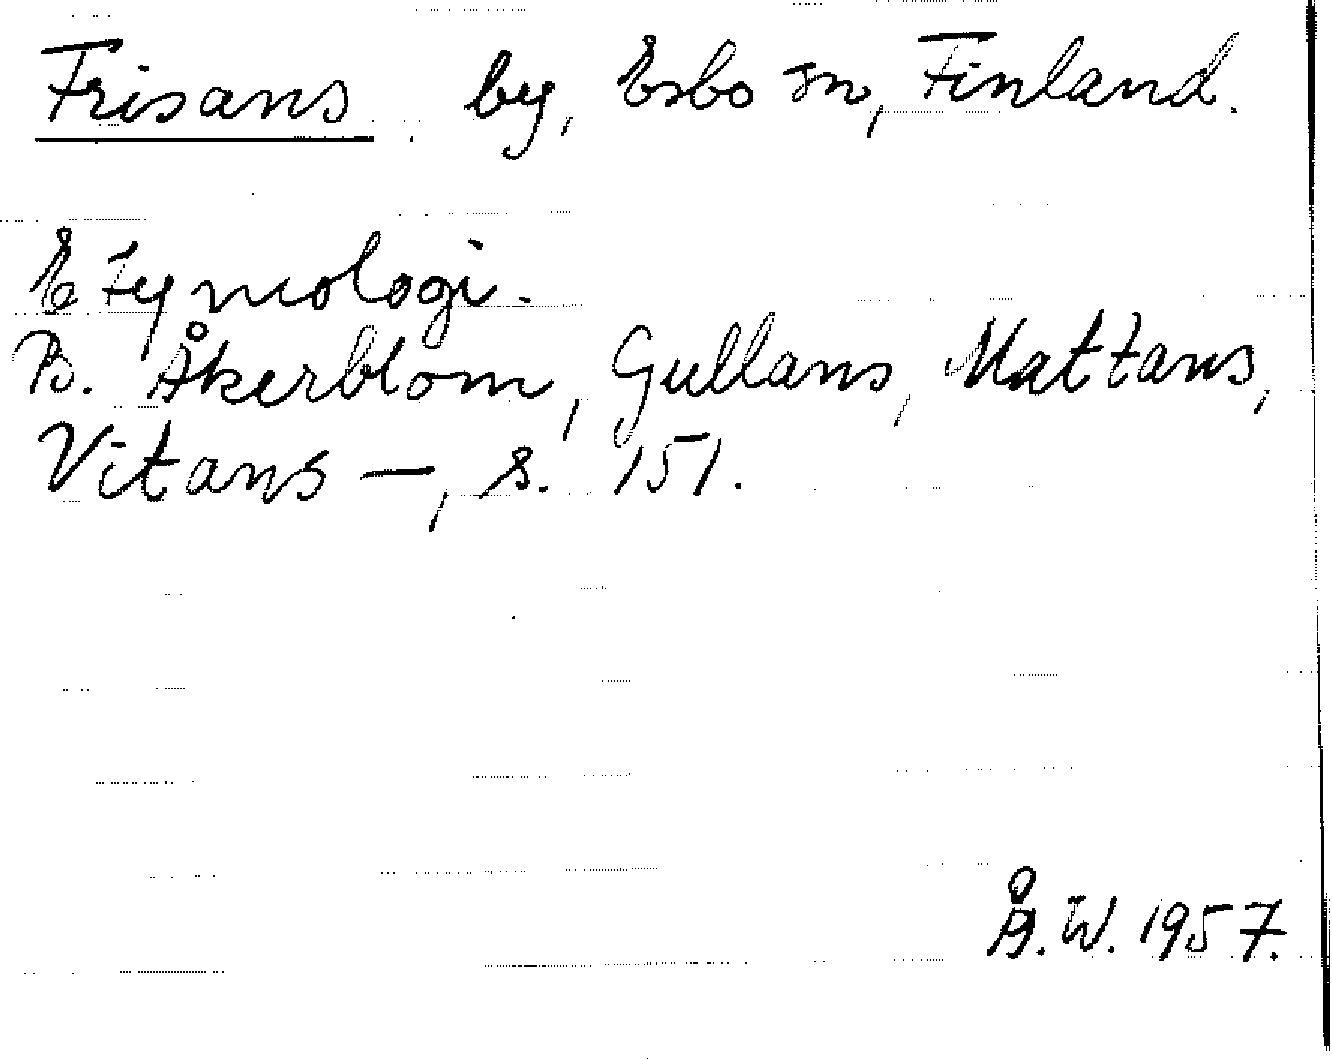 Frisans. by, Esbo sn, Finland.
Etymologi.
B. Åkerblom, Gullans, Mattans,
Vitans —, s. 151.
Å. W. 1957.